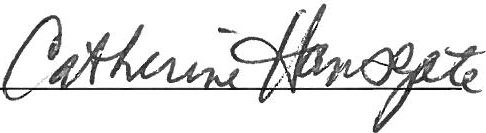 Catherine Hansgate